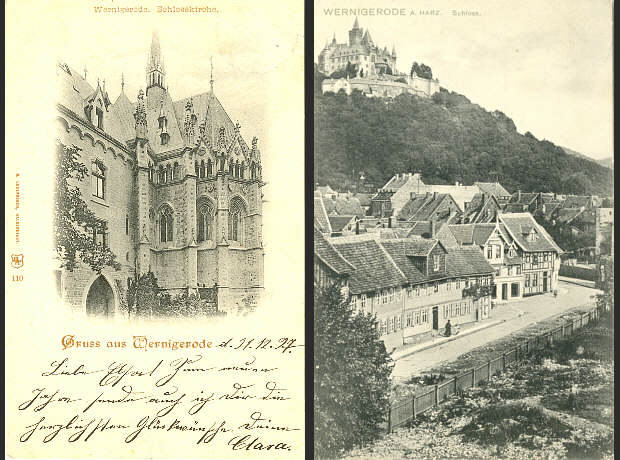 Wernigerode. Schlosskirche.
110
Gruss aus Wernigerode d. 31.12.97.
Liebe Elsa! Zum neuen
Jahre sende auch ich Dir die
herzlichsten Glückwünsche. Deine
Clara.
WERNIGERODE A. HARZ. Schloss.